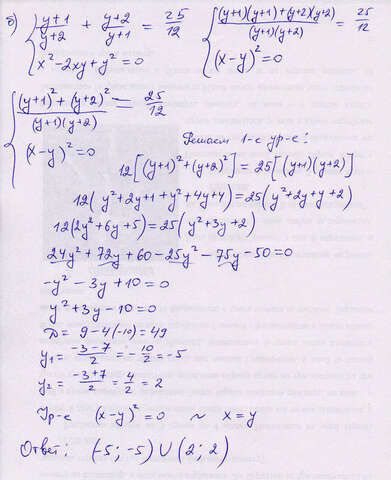 б) { (y+1)/(y+2) + (y+2)/(y+1) = 25/12
x² - 2xy + y² = 0
{ ((y+1)(y+1) + (y+2)(y+2))/((y+1)(y+2)) = 25/12
(x-y)² = 0
{ ((y+1)² + (y+2)²)/((y+1)(y+2)) = 25/12
(x-y)² = 0
Решаем 1-е ур-е:
12[(y+1)² + (y+2)²] = 25[(y+1)(y+2)]
12(y²+2y+1+y²+4y+4) = 25(y²+2y+y+2)
12(2y²+6y+5) = 25(y²+3y+2)
24y² + 72y + 60 - 25y² - 75y - 50 = 0
-y² - 3y + 10 = 0
y² + 3y - 10 = 0
D = 9 - 4(-10) = 49
y₁ = (-3-7)/2 = -10/2 = -5
y₂ = (-3+7)/2 = 4/2 = 2
Ур-е (x-y)² = 0 ~ x = y
Ответ: (-5; -5) U (2; 2)